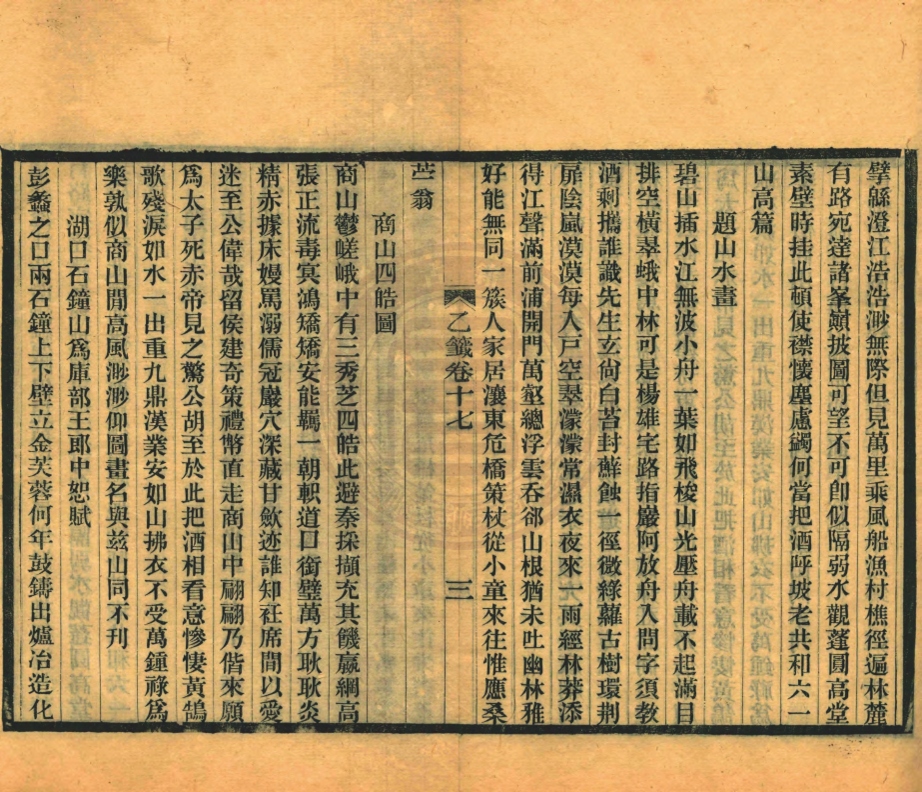 擘緜澄江浩浩渺無際但見萬里乘風船漁村樵徑遍林麓
有路宛達諸峯巔披圖可望不可卽似隔弱水觀蓬圓高堂
素壁時挂此頓使襟懷塵慮蠲何當把酒呼坡老共和六一
山高篇
題山水畫
碧山插水江無波小舟一葉如飛梭山光壓舟載不起滿目
排空橫翠蛾中林可是楊雄宅路指巖阿放舟入問字須教
酒剩攜誰識先生玄尙白苔封蘚蝕一徑微綠蘿古樹環荆
扉陰嵐漠漠每入戸空翠濛濛常濕衣夜來一雨經林莽添
得江聲滿前浦開門萬壑總浮雲吞郤山根猶未吐幽林雅
好能無同一簇人家居瀼東危橋策杖從小童來往惟應桑
乙籤卷十七
三
苎翁
商山四皓圖
商山鬱嵯峨中有三秀芝四皓此避秦採擷充其饑嬴綱高
張正流毒冥鴻矯矯安能羈一朝軹道口銜璧萬方耿耿炎
精赤據床嫚罵溺儒冠巖穴深藏甘歛迹誰知衽席間以愛
迷至公偉哉留侯建奇策禮幣直走商山中翩翩乃偕來願
爲太子死赤帝見之驚公胡至於此把酒相看意慘悽黃鵠
歌殘淚如水一出重九鼎漢業安如山拂衣不受萬鍾祿爲
樂孰似商山閒高風渺渺仰圖畫名與兹山同不刊
湖口石鐘山爲庫部王郎中恕賦
彭蠡之口兩石鐘上下壁立金芙蓉何年鼓鑄出爐冶造化